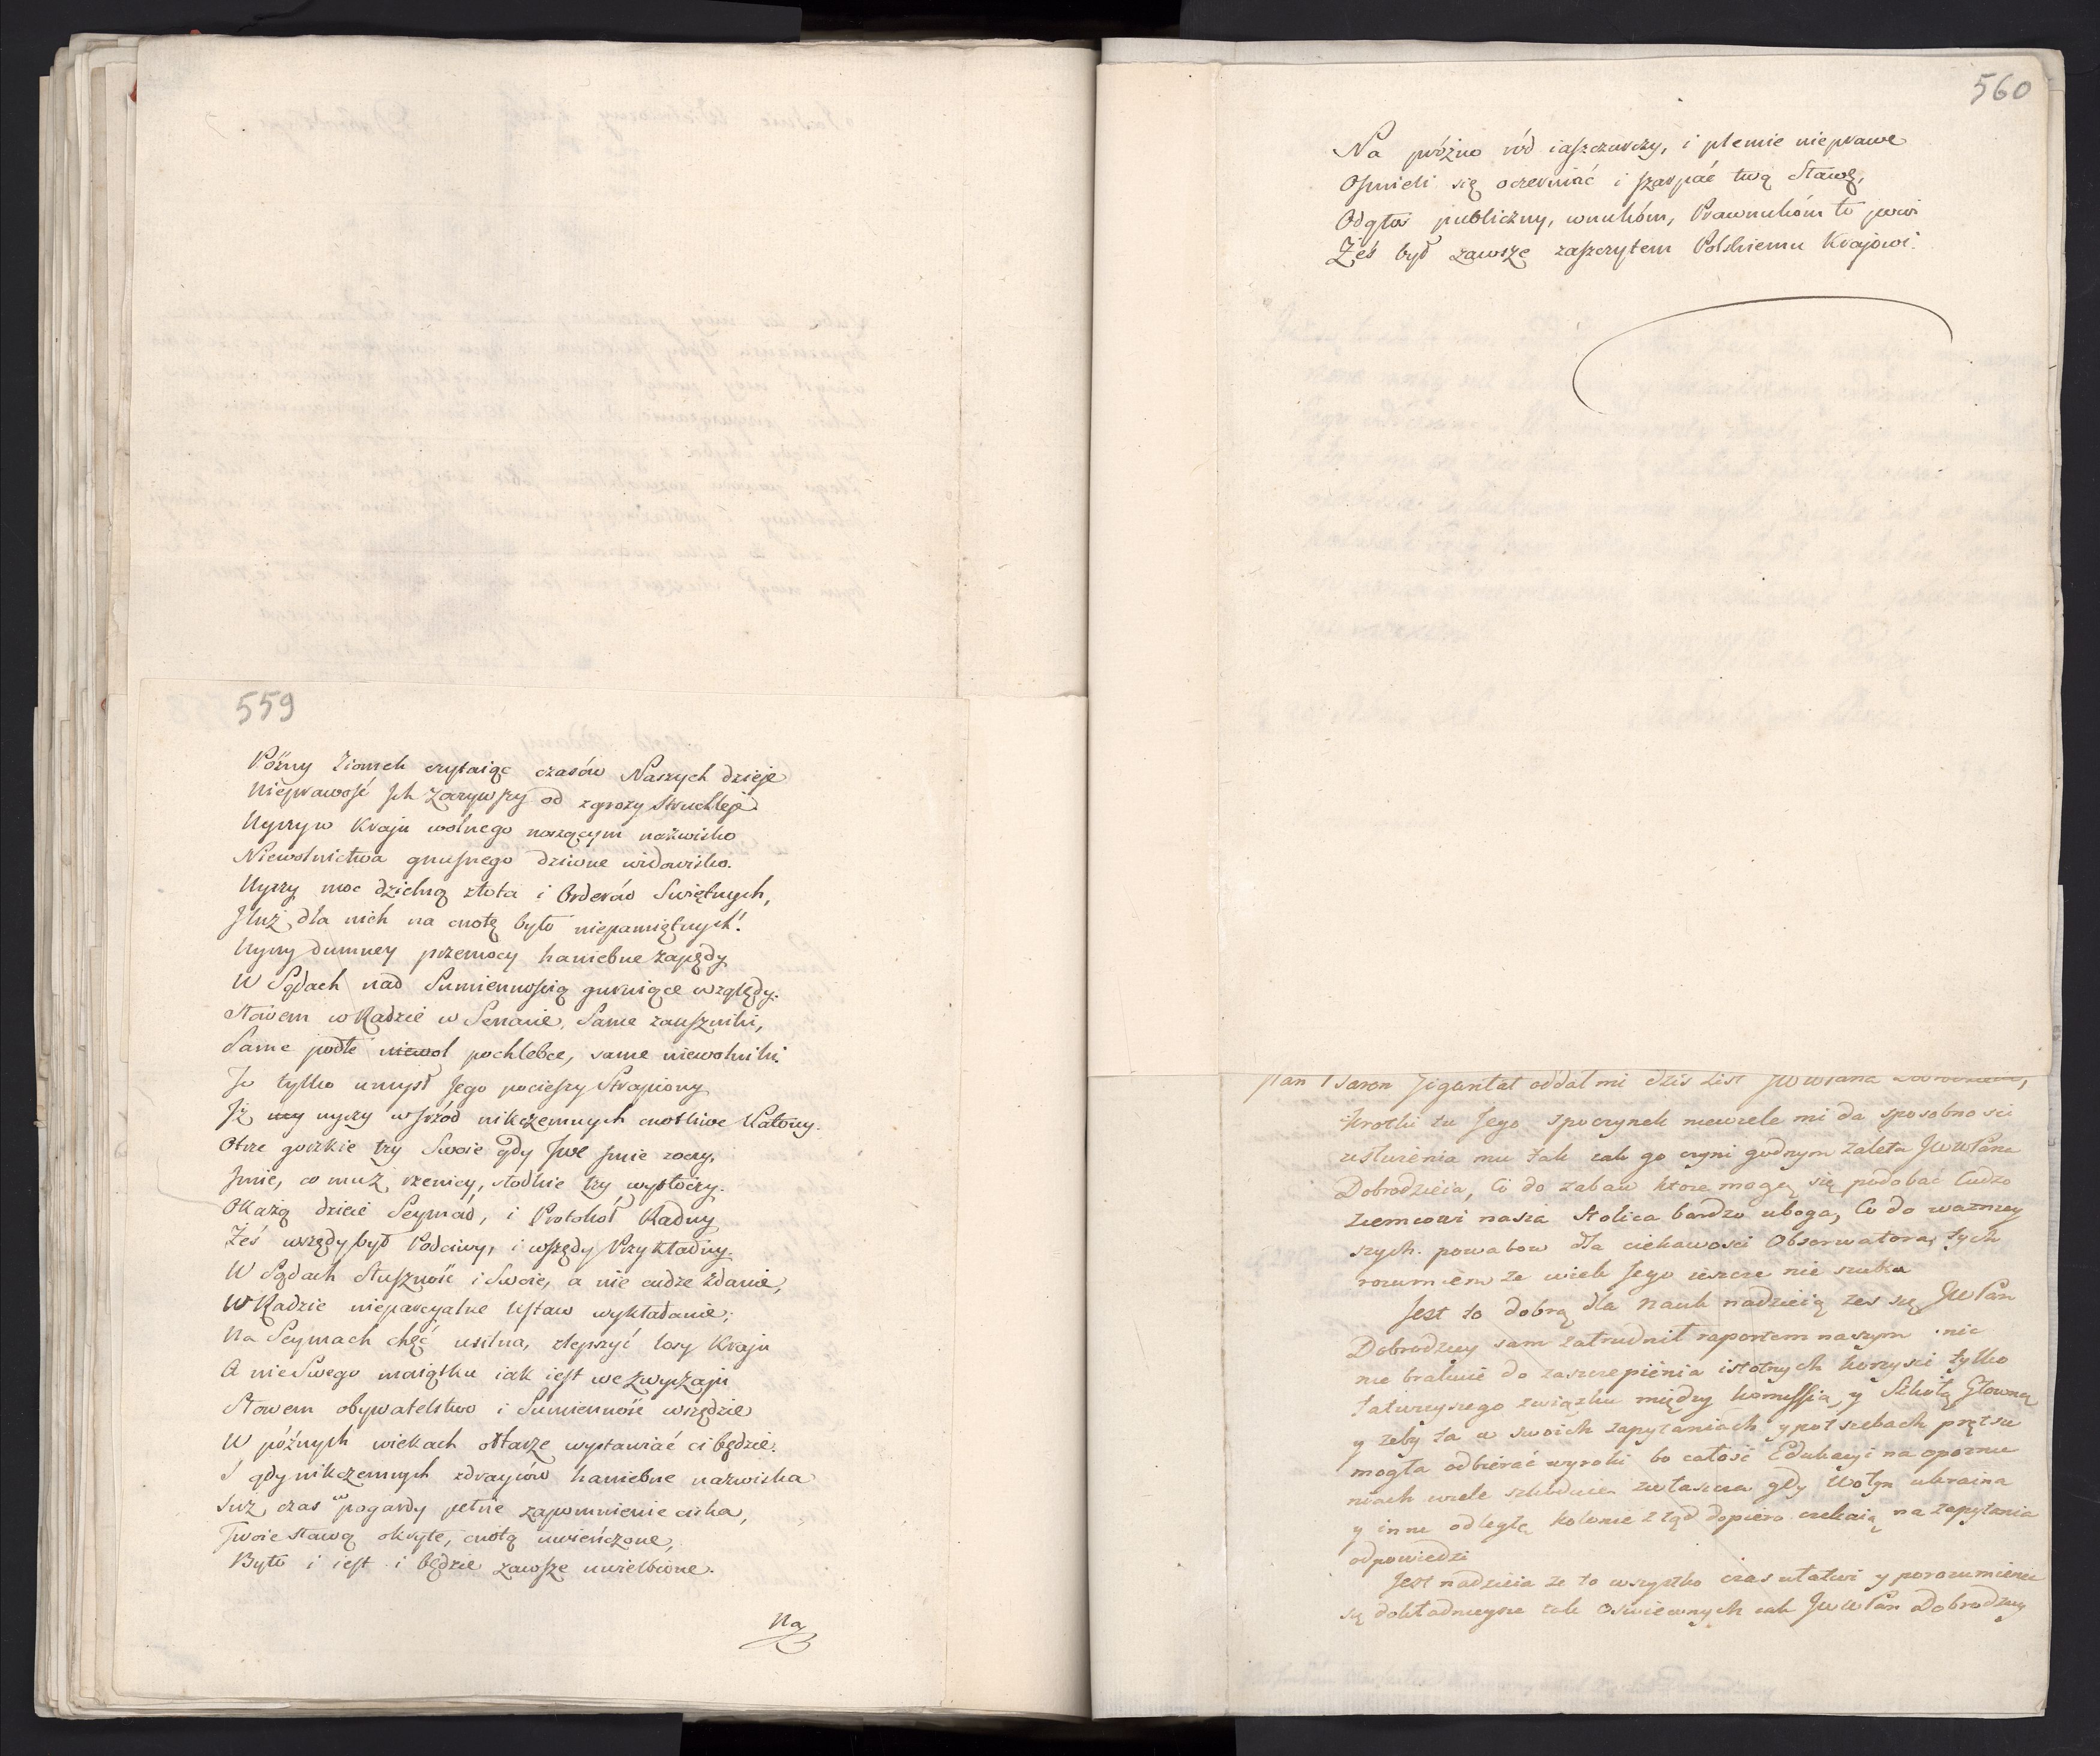 559
Póżny Ziomek czytaiąc czasów Naszych dzieje
Nieprawość Jch zoczywszy od zgrozy struchleje.
Uyrzy w Kraju wolnego noszącym nazwisko
Niewolnictwa gnuśnego dziwne widowisko.
Uyrzy moc dzielną złota i Orderów Świętnych,
Jluż dla nich na cnotę było niepamiętnych!
Uyrzy dumney przemocy haniebne zapędy
W Sądach nad Sumiennością guruiące względy.
Słowem w Radzie w Senacie, Same zauszniki,
Same podłe niewol pochlebce, same niewolniki.
To tylko umysł Jego pocieszy Strapiony
Jż uy uyrzy wśród nikczemnych cnotliwe Katony.
Otrze gorzkie łzy Swoie gdy Twe Jmie zoczy,
Jmie, co mu z źrenicy, słodkie łzy wytłoczy.
Okażą dzieie Seymów, i Protokół Radny
Żeś wszędy był Podciwy, i wszędy Przykładny.
W Sądach słuszność i Swoie, a nie cudze zdanie,
W Radzie nieparcyalne Ustaw wykładanie;
Na Seymach chęć usilna, zlepszyć losy Kraju
A nie Swego maiątku iak iest we zwyczaju
Słowem obywatelstwo i Sumienność wszędzie
W póżnych wiekach ołtarze wystawiać ci będzie.
I gdy nikczemnych zdrayców haniebne nazwiska
Już czas w pogardy pełne zapomnienie ciska,
Twoie sławą okryte, cnotą uwieńczone,
Było i iest i będzie zawsze uwielbione.
Na
560
Na próżno ród iaszczurczy, i plemie nieprawe
Ośmieli się oczerniać i szarpać twą Sławę,
Odgłos publiczny, wnukóm, Prawnukóm to powi
Żeś był zawsze zaszczytem Polskiemu Krajowi.
Pan Baron oddał mi dzis List JWWPana
Krotki tu Jego spoczynek niewiele mi da sposobnosci
usłużenia mu tak iak go czyni godnym zaleta JWWPana
Dobrodzieia, Co do zabaw ktore mogą się podobać Cudzo
ziemcowi nasza Stolica bardzo uboga, Co do waznıey
szych powabow dla ciekawosci Obserwatora, tych
rozumiem ze wiek Jego ieszcze nie szuka
Jest to dobrą dla Nauk nadzieią zes się JWPan
Dobrodziey sam zatrudnił raportem naszym nic
nie brakuie do zaszczepienia istotnych korzysci tylko
łatwieyszego związku między komissią y Szkołą Głowną
y zeby ta w swoich zapytaniach y potrzebach prętsze
mogła odbierać wyroki bo całość Edukacyi na opoznie
niach wiele szkoduie zwłaszcza gdy Wołyn ukraina
y inne odległe kolonie z tąd dopiero czekaią na zapytania
odpowiedzi
Jest nadzieia ze to wszystko czas ułatwi y porozumienie
się dokładnieysze tak Oswieconych iak JWWPan Dobrodziey